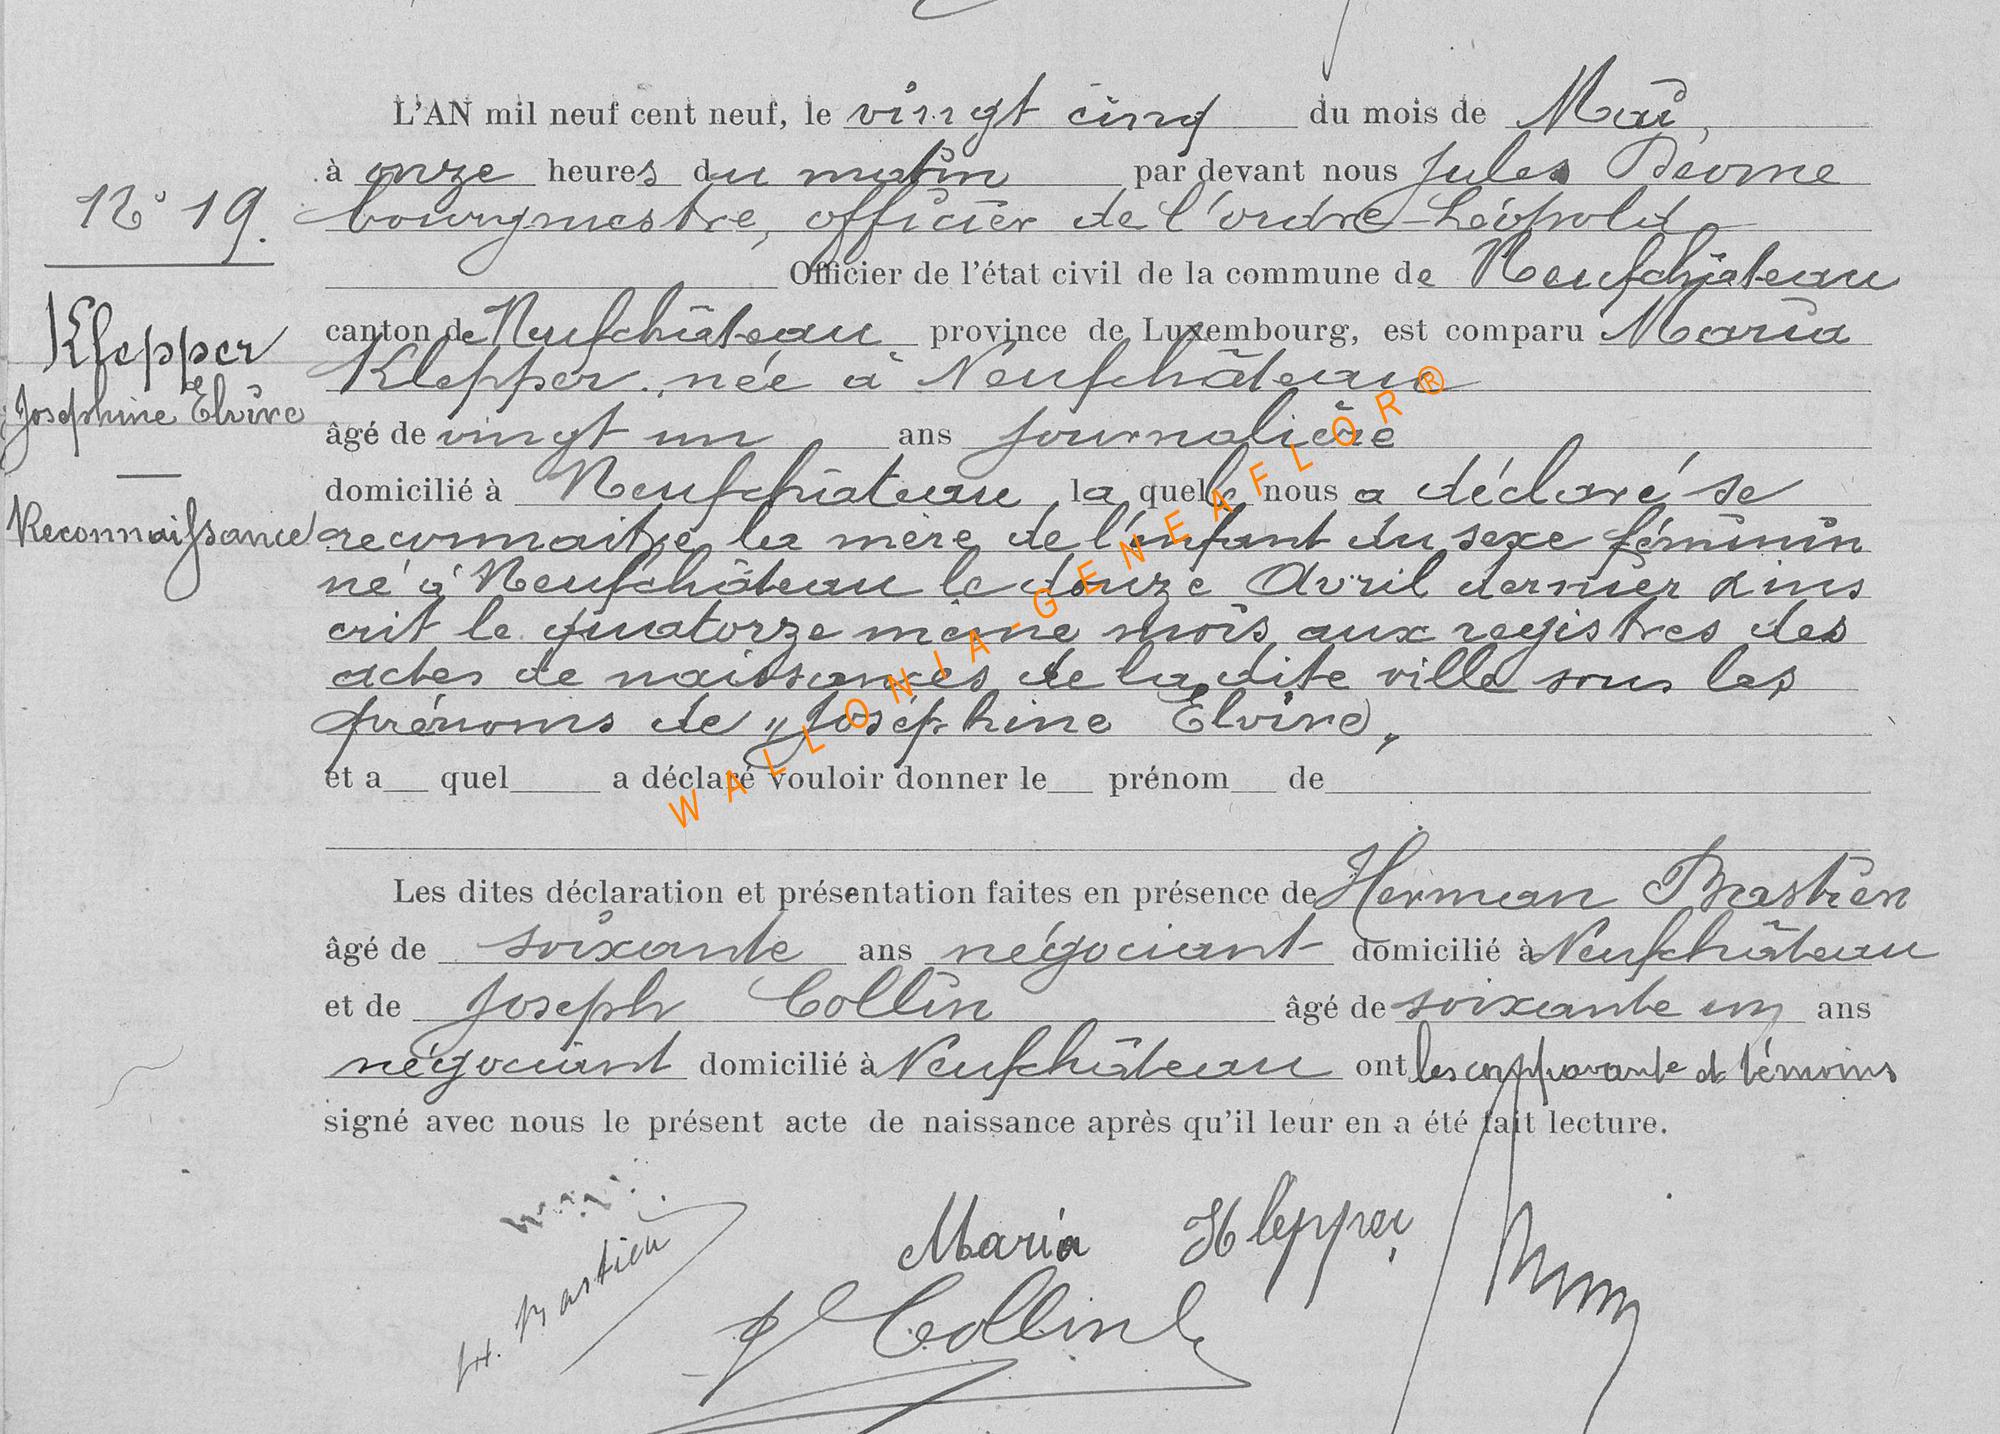 L'AN mil neuf cent neuf, le vingt cinq du mois de Mai,
à onze heures du matin par devant nous Jules
bourgmestre, officier de l'ordre Léopold
Officier de l'état civil de la commune de Neufchâteau
canton de Neufchâteau province de Luxembourg, est comparu Maria
Klepper, née à Neufchâteau
âgé de vingt un ans journalière
domicilié à Neufchâteau, la quelle nous a déclaré se
reconnaitre la mère de l'enfant du sexe féminin
né à Neufchâteau le douze Avril dernier & ins
crit le quatorze même mois aux registres des
actes de naissances de la dite ville sous les
prénoms de „Joséphine Elvire„
et a quel a déclaré vouloir donner le prénom de
Les dites déclaration et présentation faites en présence de Herman Bastien
âgé de soixante ans négociant domicilié à Neufchâteau
et de Joseph Collin âgé de soixante un ans
négociant domicilié à Neufchâteau ont les comparante et témoins
signé avec nous le présent acte de naissance après qu'il leur en a été fait lecture.
N° 19.
Klepper
Josephine Elvire
Reconnaissance
H. Bastien
Maria Klepper
J Collin
WALLONIA-GENEAFLOR®